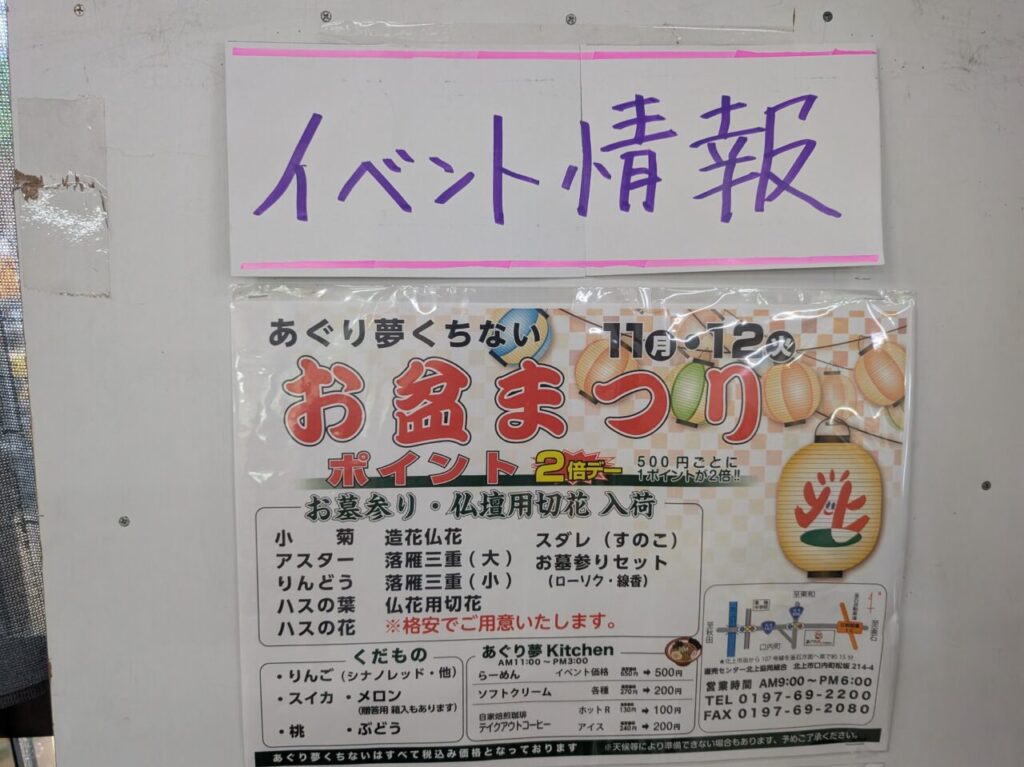 イベント情報
あぐり夢くちない 11月・12火
お盆まつり
ポイント 2倍デー 500円ごとに
1ポイントが2倍!!
お墓参り・仏壇用切花 入荷
小 菊 造花仏花 スダレ(すのこ)
アスター 落雁三重(大) お墓参りセット
りんどう 落雁三重(小) (ローソク・線香)
ハスの葉 仏花用切花
ハスの花 ※格安でご用意いたします。
くだもの
・りんご(シナノレッド・他)
・スイカ ・メロン
(贈答用 箱入もあります)
・桃 ・ぶどう
あぐり夢 Kitchen
AM11:00〜PM3:00
らーめん イベント価格 650円 ➔ 500円
ソフトクリーム 各種 270円 ➔ 200円
自家焙煎珈琲
テイクアウトコーヒー
ホットR 130円 ➔ 100円
アイス 240円 ➔ 200円
北
至東和
至秋田
至釜石
口内町
★北上市街から107号線を釜石方面へ車で約15分
産売センター北上協同組合 北上市口内町松坂 214-4
営業時間 AM9:00〜PM6:00
TEL 0197-69-2200
FAX 0197-69-2080
あぐり夢くちないはすべて税込み価格となっております ※天候等により準備できない場合もあります、予めご了承ください。